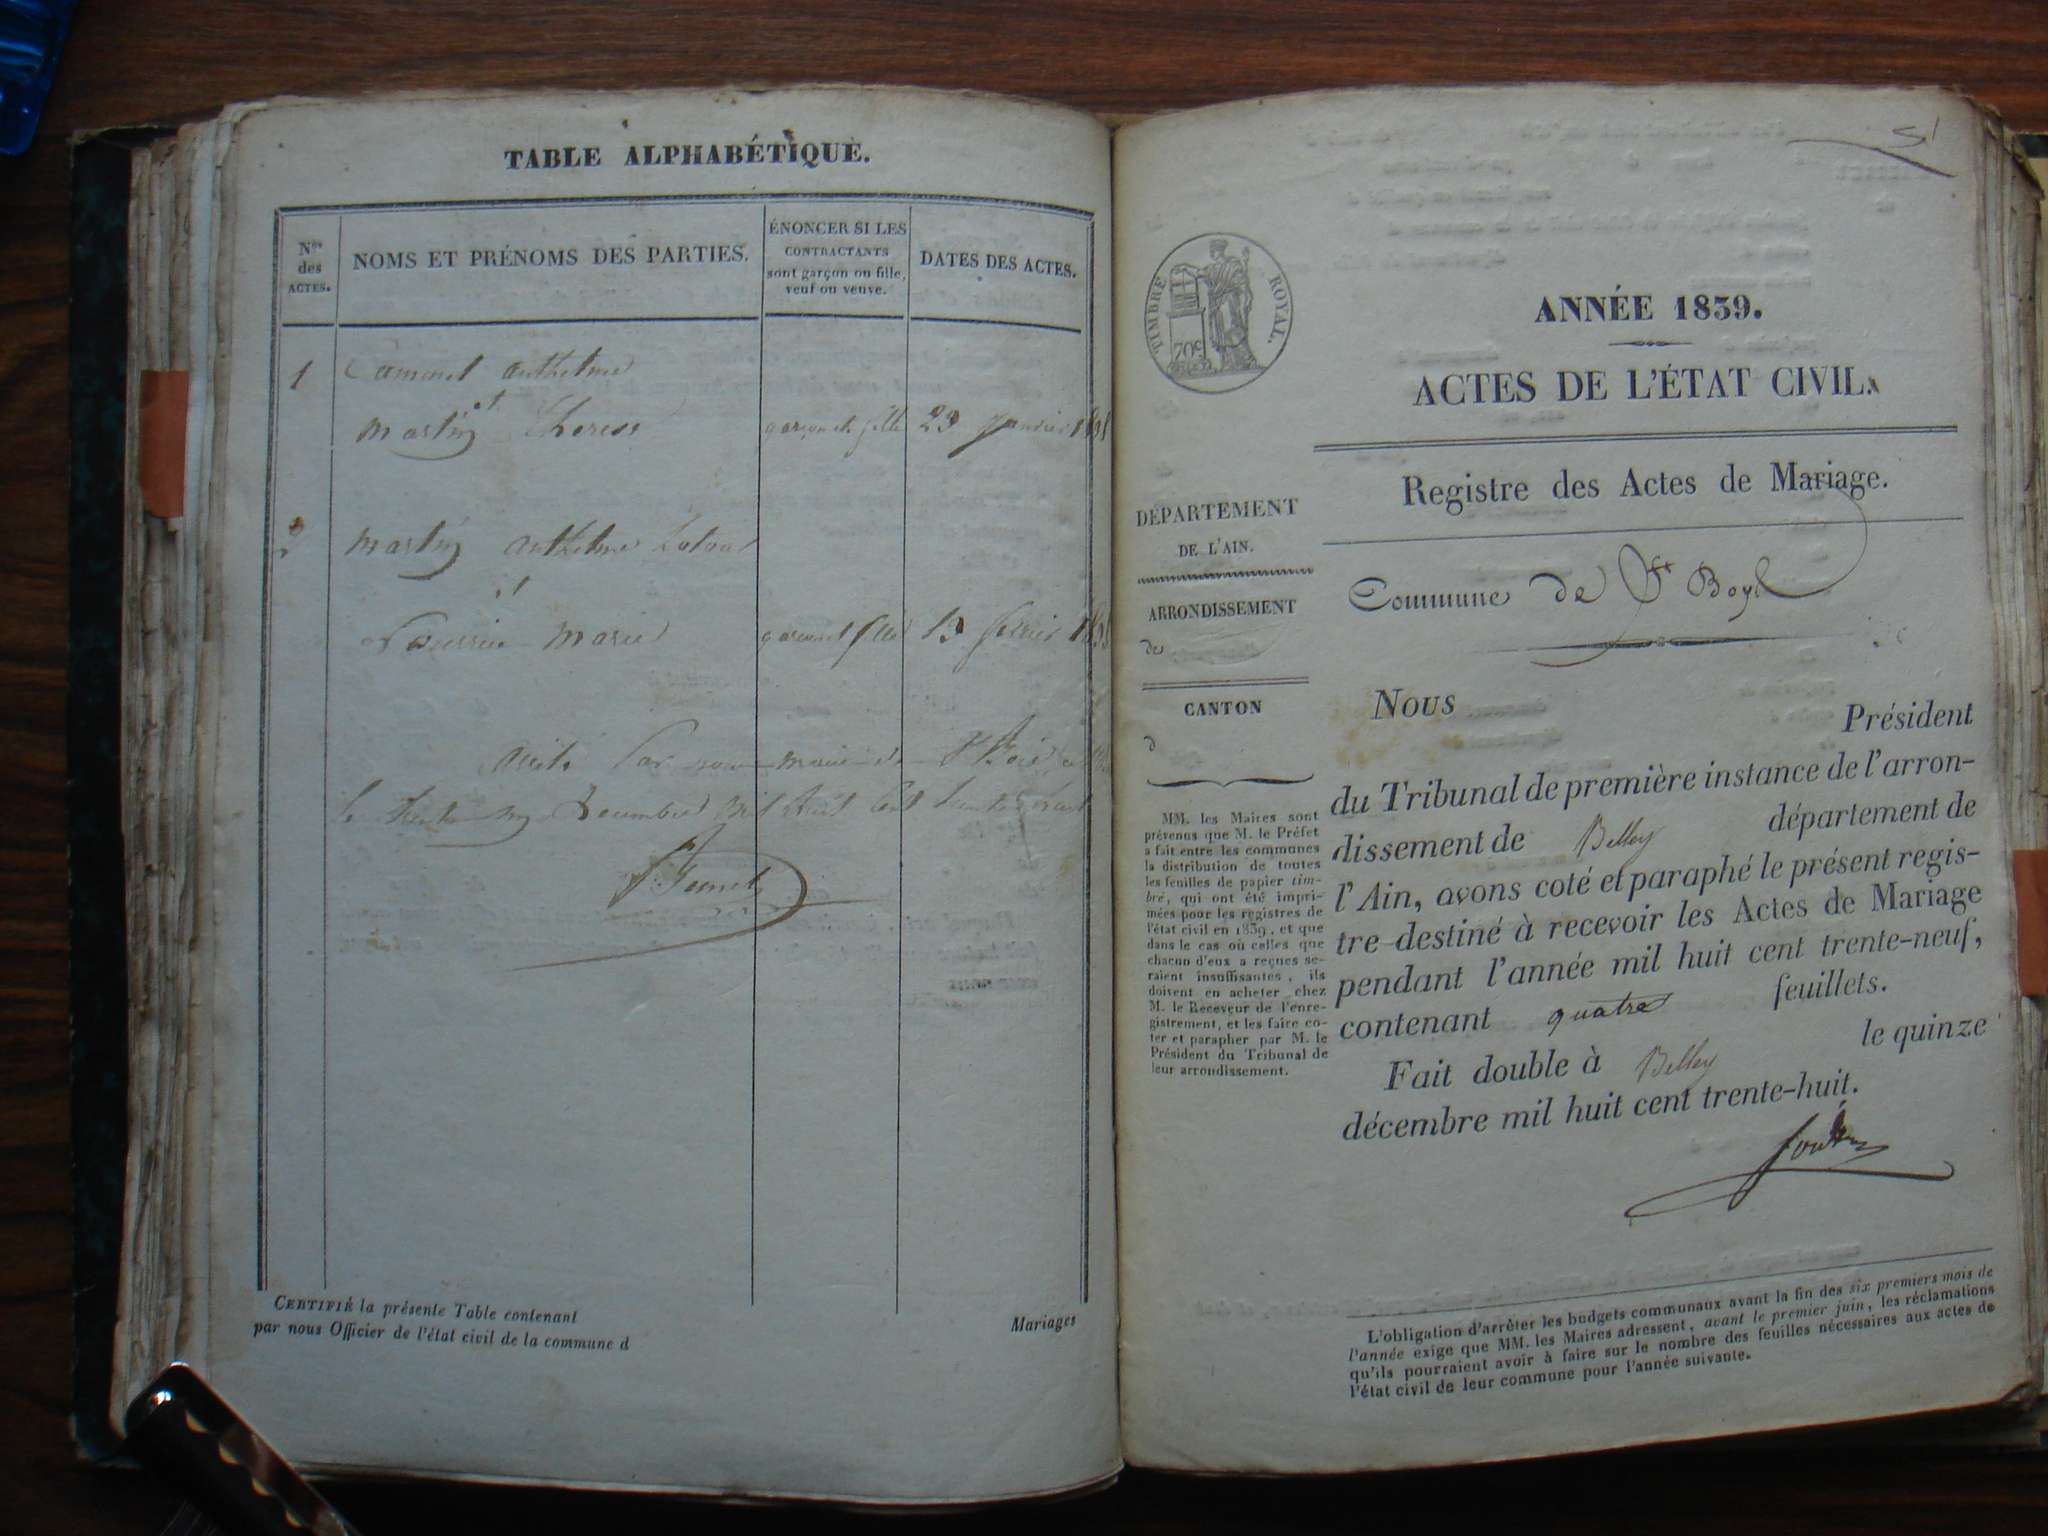 TABLE ALPHABÉTIQUE.
Nos des ACTES.
NOMS ET PRÉNOMS DES PARTIES.
ÉNONCER SI LES
CONTRACTANTS
sont garçon ou fille,
veuf ou veuve.
DATES DES ACTES.
1 Camonet anthelme
et
Martin Therese garçon et fille 23 janvier 1838
2 Martin anthelme
et
marie garçon et fille 13 fevrier 1838
par nous maire de St
le trente un Decembre mil huit cent trente huit
CERTIFIÉ la présente Table contenant Mariages
par nous Officier de l'état civil de la commune d
51
TIMBRE ROYAL.
70c
ANNÉE 1839.
ACTES DE L'ÉTAT CIVIL.
Registre des Actes de Mariage.
DÉPARTEMENT
DE L'AIN.
ARRONDISSEMENT
de
CANTON
d
MM. les Maires sont
prévenus que M. le Préfet
a fait entre les communes
la distribution de toutes
les feuilles de papier tim-
bré, qui ont été impri-
mées pour les registres de
l'état civil en 1839, et que
dans le cas où celles que
chacun d'eux a reçues se-
raient insuffisantes, ils
doivent en acheter chez
M. le Receveur de l'enre-
gistrement, et les faire co-
ter et parapher par M. le
Président du Tribunal de
leur arrondissement.
Commune de St Boys
Nous Président
du Tribunal de première instance de l'arron-
dissement de Belley département de
l'Ain, avons coté et paraphé le présent regis-
tre destiné à recevoir les Actes de Mariage
pendant l'année mil huit cent trente-neuf,
contenant quatre feuillets.
Fait double à Belley le quinze
décembre mil huit cent trente-huit.
L'obligation d'arrêter les budgets communaux avant la fin des six premiers mois de
l'année exige que MM. les Maires adressent, avant le premier juin, les réclamations
qu'ils pourraient avoir à faire sur le nombre des feuilles nécessaires aux actes de
l'état civil de leur commune pour l'année suivante.